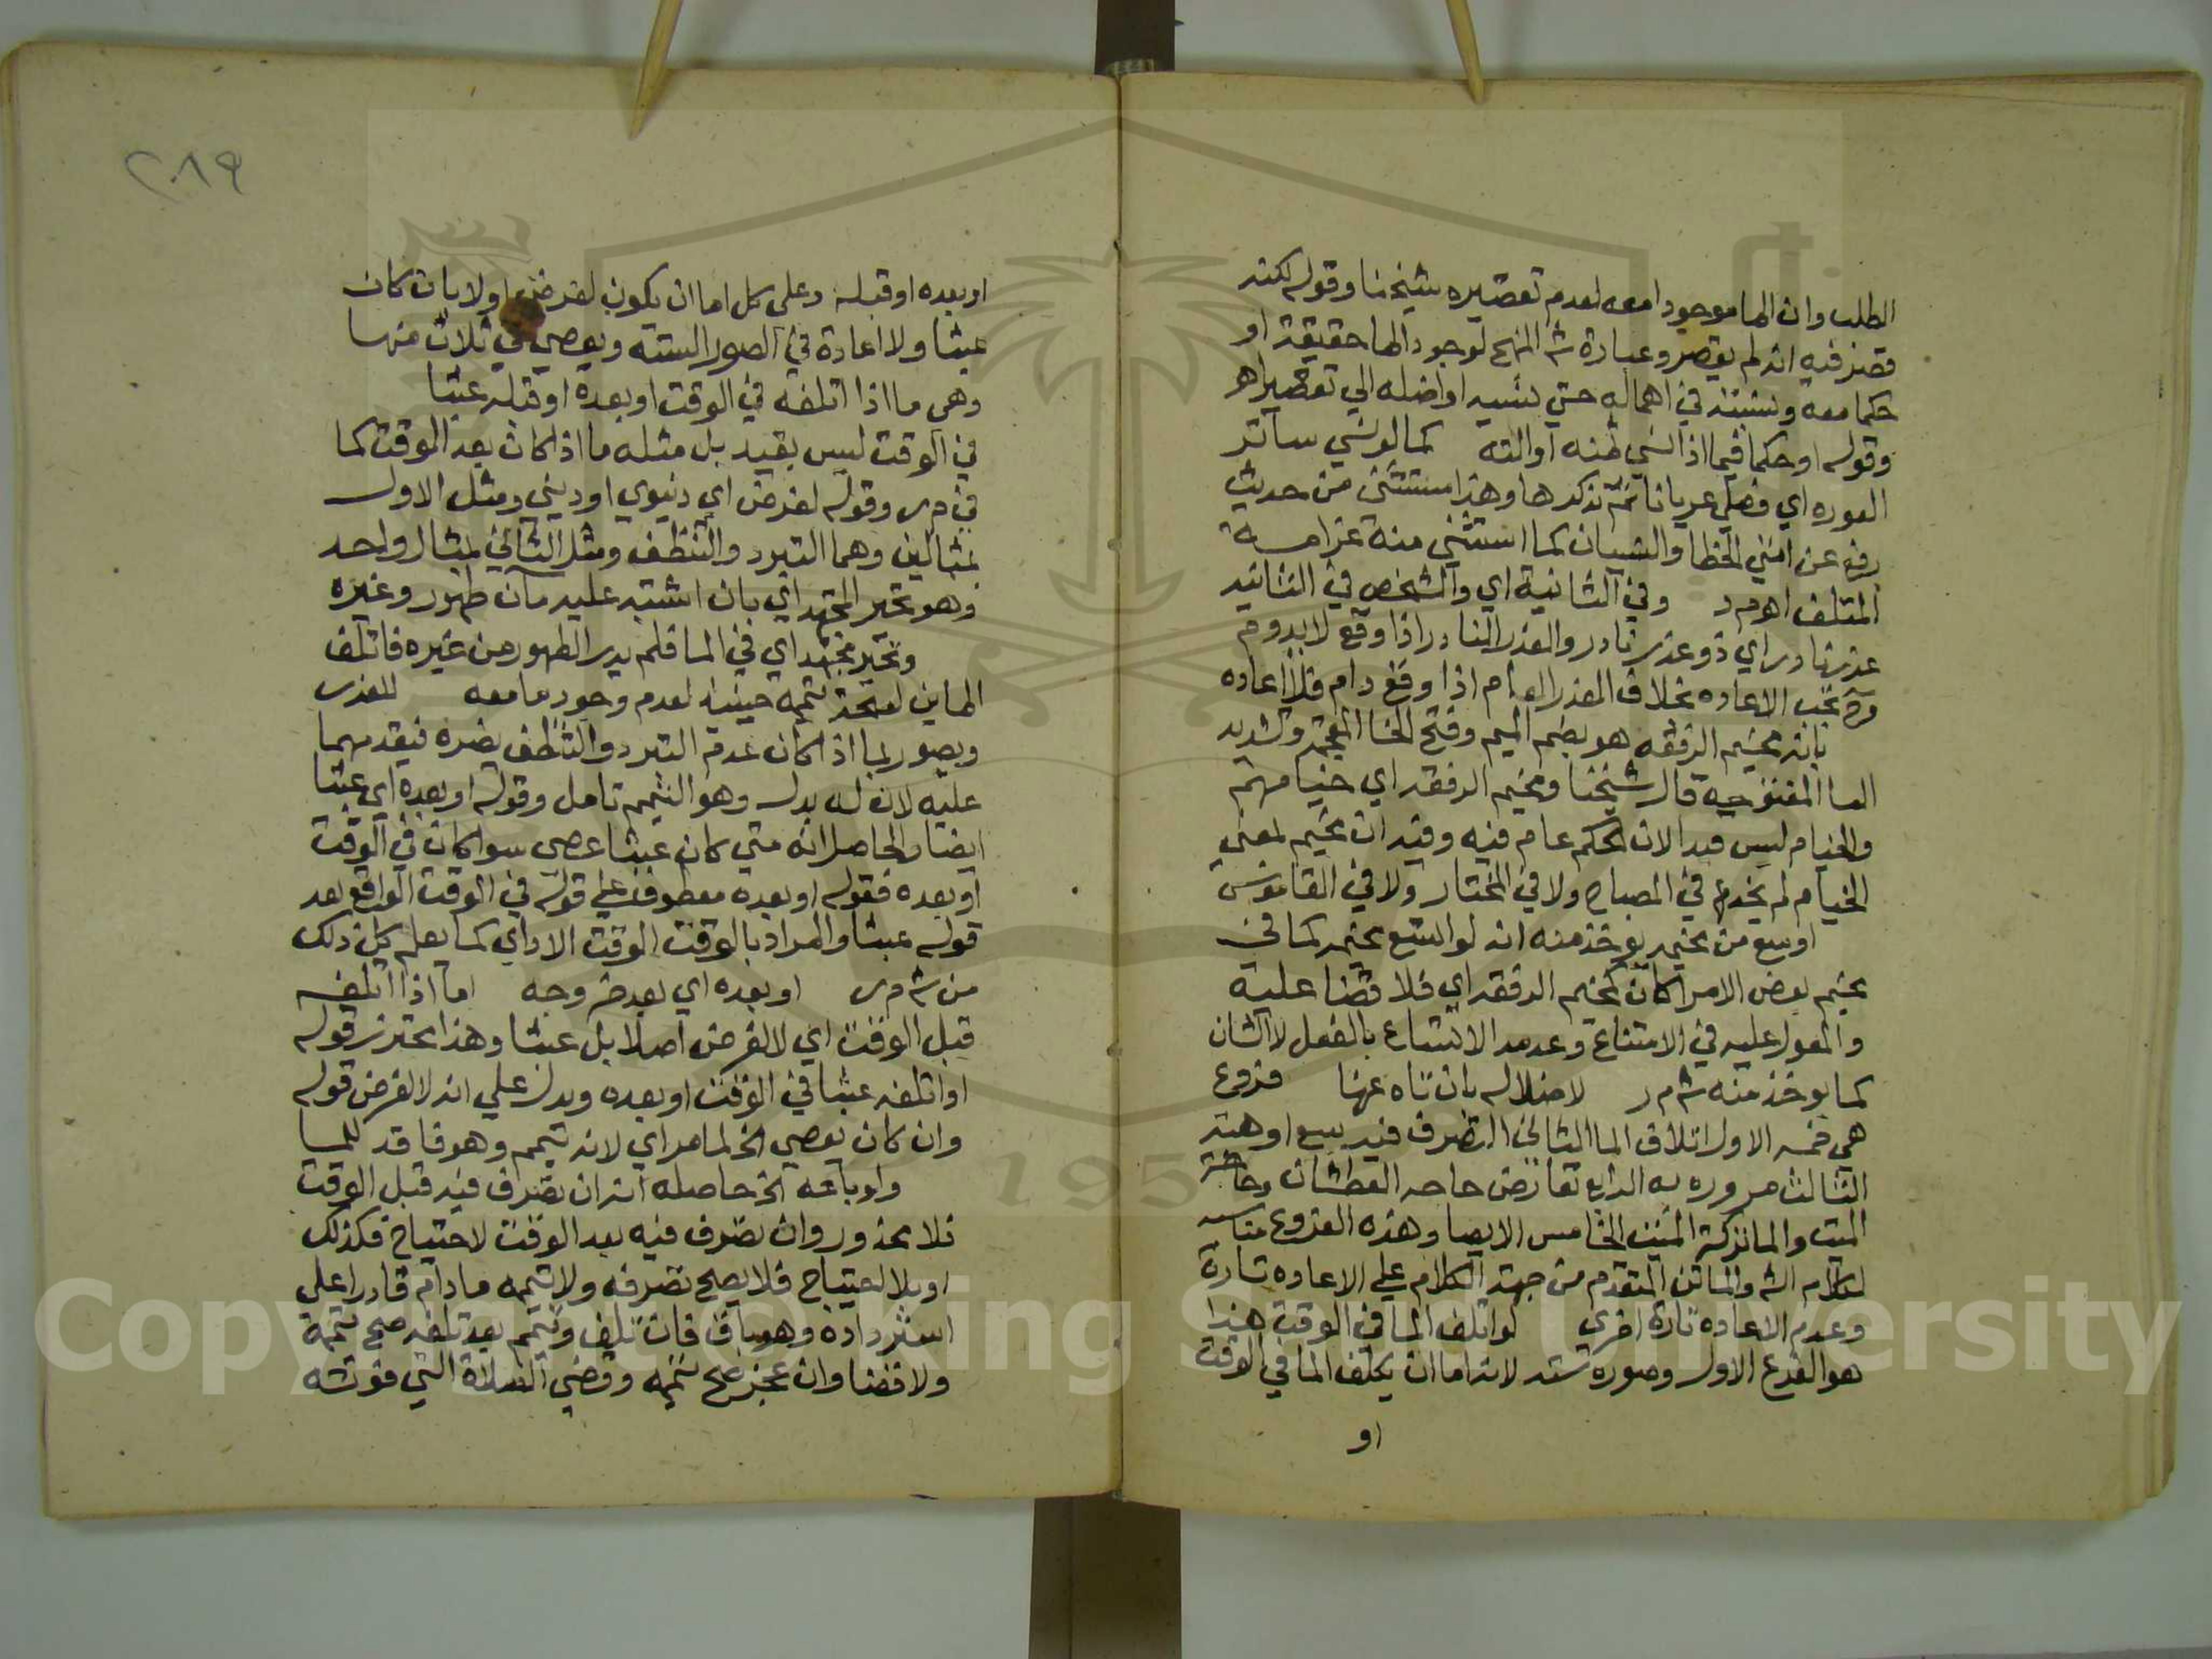 الطلب وان الما موجودا معه لعدم تقصيره شيخنا وقوله لكنه
قصر فيه انه لم يقصر وعبارة شم المنهج لوجود الما حقيقة او
حكما معه وينسب في اهماله حتى نسيه او اضله الي تقصير اهـ
وقوله او حكما فيما اذا نسي ثمنه او الته كما لو نسي ساتر
العوره اي فصلي عريانا ثم تذكرها وهذا مستثنى من حديث
رفع عن امتي الخطا والنسيان كما استثني منه غرامـــة
المتلف اهـ م د وفي الثانية اي والشخص في الثانيه
عذر نادر اي ذو عذر نادر والعذر النادر اذا وقع لا يدوم
تجب الاعاده بخلاف العذر العام اذا وقع دام فلا اعاده
بانه مخيم الرفقه هو بضم الميم وفتح الخا المعجمة وتشديد
اليا المفتوحه قال شيخنا ومخيم الرفقه اي خيامهم
والخيام ليس قيدا لان الحكم عام فيه وقيد ان مخيم بمعنى
الخيام لم يخدها في المصباح ولا في المختار ولا في القاموس
اوسع من مخيمه يوخذ منه انه لو اتسع مخيمه كما في
مخيم بعض الامرا كان كمخيم الرفقه اي فلا قضا عليه
والمعول عليه في الاتساع وعدمه الاتساع بالفعل لا الشان
كما يوخذ منه شم ر لاضلاله بان تاه عنها فروع
هي خمسه الاول اتلاف الما الثاني التصرف فيه ببيع او هبة
الثالث مروره به الرابع تعارض حاجه العطشان وحاجة
الميت والما تركة الميت الخامس الايصا وهذه الفروع مناسبه
لكلام الش والماتن المتقدم من جهة الكلام علي الاعاده تارة
وعدم الاعاده تارة اخرى لو اتلف الما في الوقت هذا
هو الفرع الاول وصوره سته لانه اما ان يتلف الما في الوقت
او
٢٨٩
او بعده او قبله وعلى كل اما ان يكون لغرض اولا بان كان
عبثا ولا اعادة في الصور الستة ويعصي في ثلاث منها
وهي ما اذا اتلفه في الوقت او بعده او قبله عبثا
في الوقت ليس بقيد بل مثله ما اذا كان بعد الوقت كما
في م ر وقوله لغرض اي دنيوي او ديني ومثل الاول
بمثالين وهما التبرد والتنظف ومثل الثاني بمثال واحد
وهو تحير المجتهد اي بان اشتبه عليه ماان طهور وغيره
وتحير مجتهد اي في الما فلم يدر الطهور من غيره فاتلف
الماين لصحة تيممه حينئذ لعدم وجود ما معه للعذر
ويصور بما اذا كان عدم التبرد والتنظف يضره فيقدمهما
عليه لان له بدل وهو التيمم تامل وقوله او بعده اي عبثا
ايضا والحاصل انه متي كان عبثا عصى سوا كان في الوقت
او بعده فقوله او بعده معطوف على قوله في الوقت الواقع بعد
قوله عبثا والمراد بالوقت الوقت الاداي كما يعلم كل ذلك
من شم ر او بعده اي بعد خروجه اما اذا اتلفه
قبل الوقت اي لا لغرض اصلا بل عبثا وهذا محترز قوله
او اتلفه عبثا في الوقت او بعده ويدل علي انه لا لغرض قوله
وان كان يعصي الخ لما مر اي لانه تيمم وهو فاقد للمـا
ولو باعه الخ حاصله انه ان تصرف فيه قبل الوقت
فلا محذور وان تصرف فيه بعد الوقت لاحتياج فكذلك
او بلا احتياج فلا يصح تصرفه ولا تيممه ما دام قادرا على
استرداده وهو باق فان تلف وتيمم بعد تلفه صح تيممه
ولا قضا وان عجز صح تيممه وقضي الصلاة التي فوته
Copyright © King Saud University
195